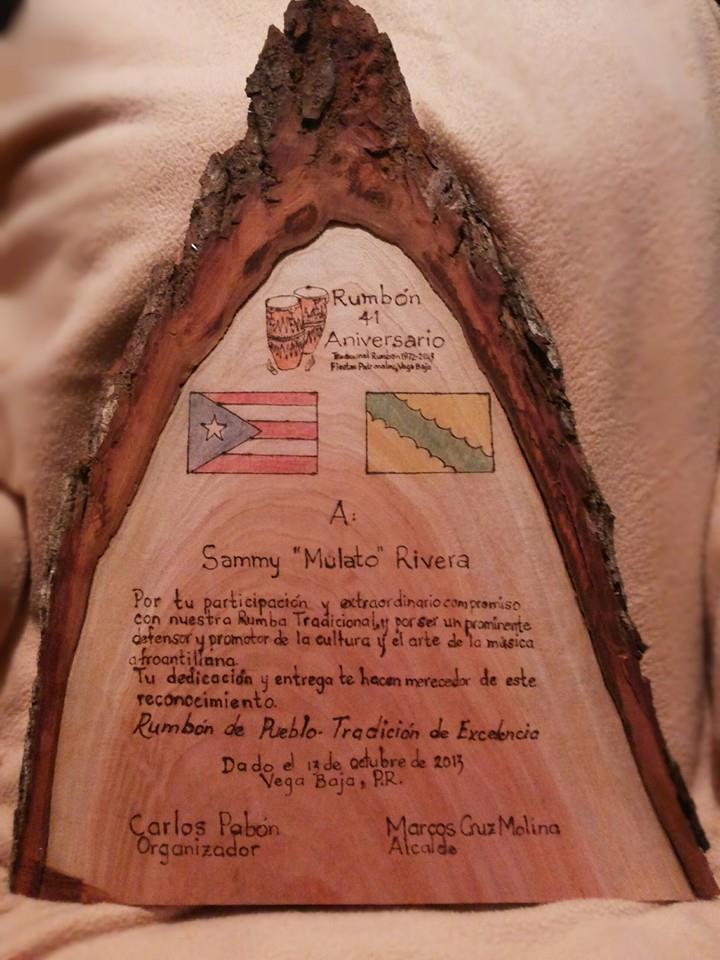 Rumbón
41
Aniversario
Tradicional Rumbon 1972-2013
Fiestas Patronales, Vega Baja
A:
Sammy "Mulato" Rivera
Por tu participación y extraordinario compromiso
con nuestra Rumba Tradicional, y por ser un prominente
defensor y promotor de la cultura y el arte de la música
afroantillana.
Tu dedicación y entrega te hacen merecedor de este
reconocimiento.
Rumbón de Pueblo- Tradición de Excelencia
Dado el 12 de octubre de 2013
Vega Baja, P.R.
Carlos Pabón
Organizador
Marcos Cruz Molina
Alcalde